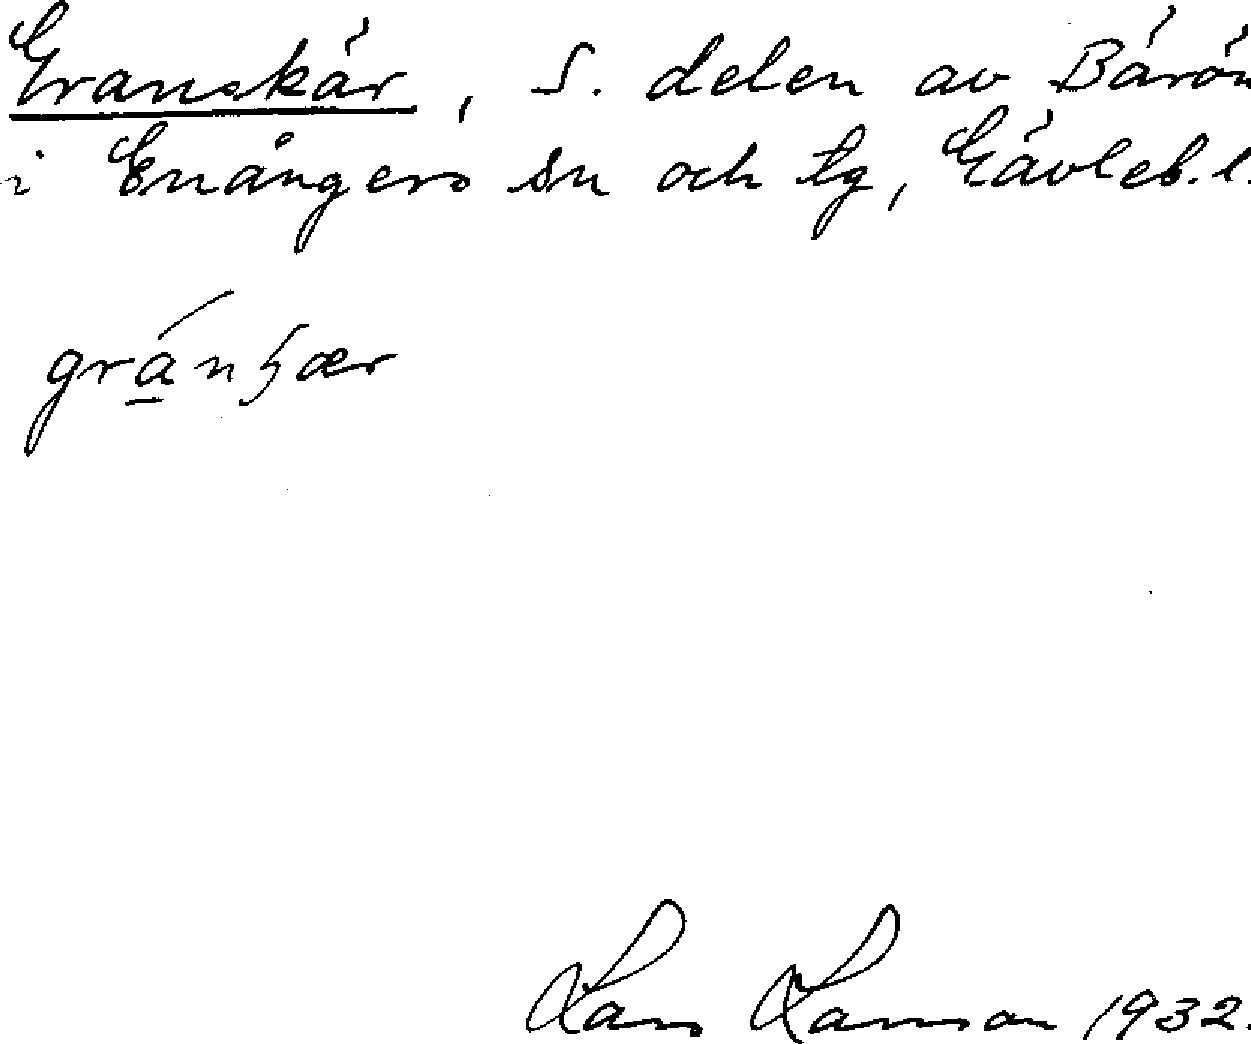 Granskär, S. delen av Bärön
i Enångers sn och tg, Gävleb. l.
gránʂær
Lars Larsson 1932.